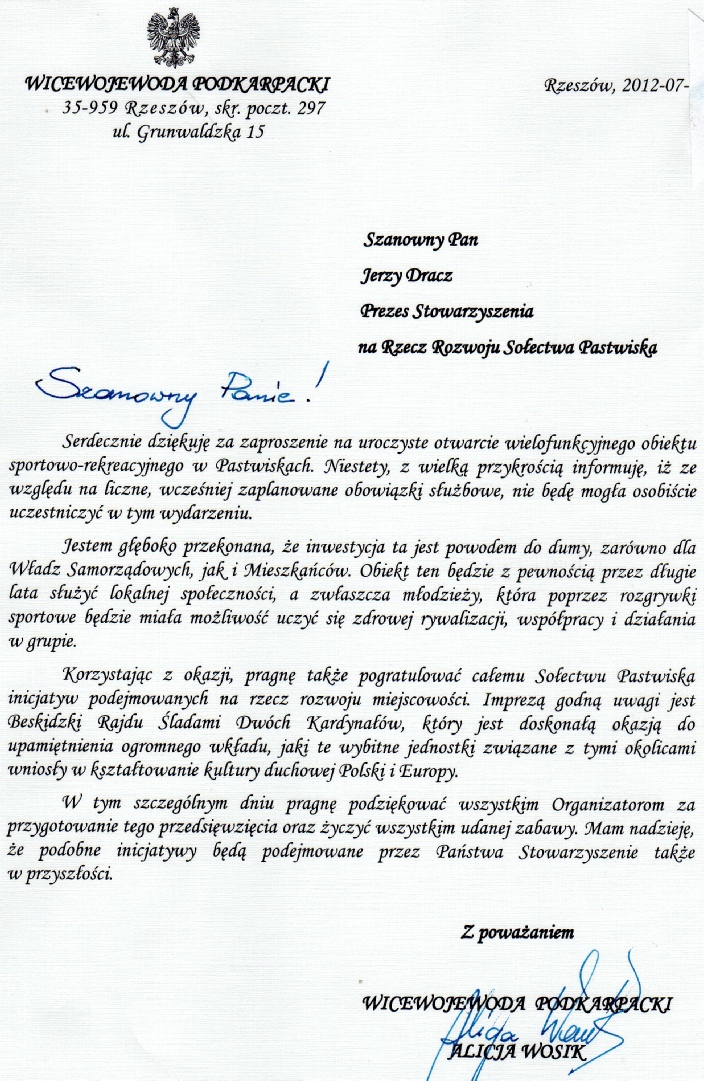 WICEWOJEWODA PODKARPACKI
35-959 Rzeszów, skr. poczt. 297
ul. Grunwaldzka 15
Rzeszów, 2012-07-
Szanowny Pan
Jerzy Dracz
Prezes Stowarzyszenia
na Rzecz Rozwoju Sołectwa Pastwiska
Szanowny Panie!
Serdecznie dziękuję za zaproszenie na uroczyste otwarcie wielofunkcyjnego obiektu
sportowo-rekreacyjnego w Pastwiskach. Niestety, z wielką przykrością informuję, iż ze
względu na liczne, wcześniej zaplanowane obowiązki służbowe, nie będę mogła osobiście
uczestniczyć w tym wydarzeniu.
Jestem głęboko przekonana, że inwestycja ta jest powodem do dumy, zarówno dla
Władz Samorządowych, jak i Mieszkańców. Obiekt ten będzie z pewnością przez długie
lata służyć lokalnej społeczności, a zwłaszcza młodzieży, która poprzez rozgrywki
sportowe będzie miała możliwość uczyć się zdrowej rywalizacji, współpracy i działania
w grupie.
Korzystając z okazji, pragnę także pogratulować całemu Sołectwu Pastwiska
inicjatyw podejmowanych na rzecz rozwoju miejscowości. Imprezą godną uwagi jest
Beskidzki Rajdu Śladami Dwóch Kardynałów, który jest doskonałą okazją do
upamiętnienia ogromnego wkładu, jaki te wybitne jednostki związane z tymi okolicami
wniosły w kształtowanie kultury duchowej Polski i Europy.
W tym szczególnym dniu pragnę podziękować wszystkim Organizatorom za
przygotowanie tego przedsięwzięcia oraz życzyć wszystkim udanej zabawy. Mam nadzieję,
że podobne inicjatywy będą podejmowane przez Państwa Stowarzyszenie także
w przyszłości.
Z poważaniem
WICEWOJEWODA PODKARPACKI
Alicja Wosik
ALICJA WOSIK